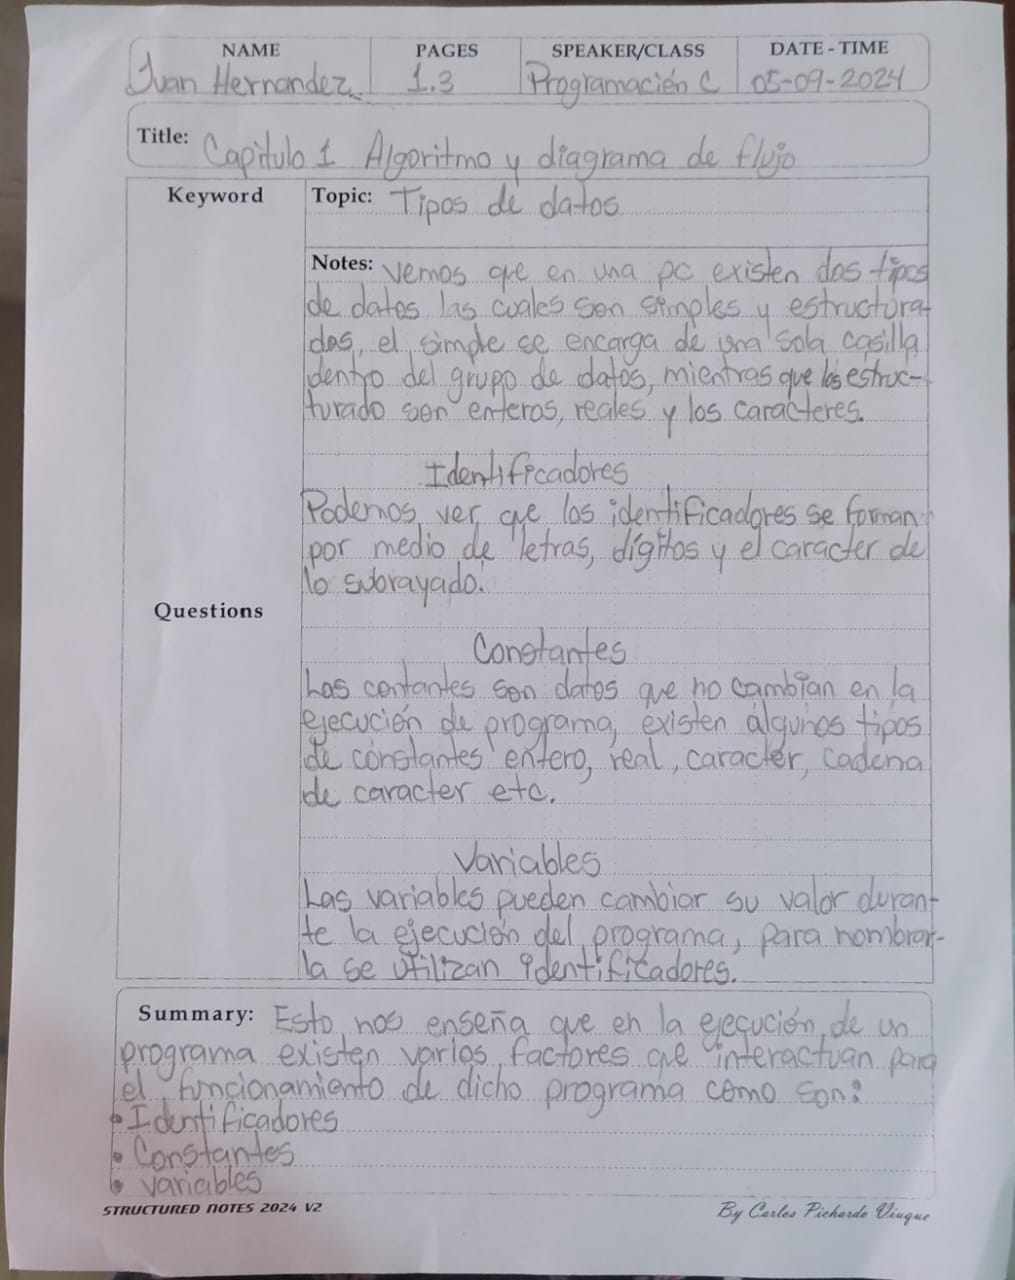 NAME PAGES SPEAKER/CLASS DATE - TIME
Juan Hernandez 1.3 Programación C 05-09-2024
Title: Capitulo 1 Algoritmo y diagrama de flujo
Keyword Topic: Tipos de datos
Notes: Vemos que en una pc existen dos tipos
de datos las cuales son simples y estructura-
dos, el simple se encarga de una sola casilla
dentro del grupo de datos, mientras que los estruc-
turado son enteros, reales y los caracteres.
Identificadores
Podemos ver que los identificadores se forman
por medio de letras, dígitos y el caracter de
lo subrayado.
Questions
Constantes
Las contantes son datos que no cambian en la
ejecución de programa, existen algunos tipos
de constantes entero, real, caracter, cadena
de caracter etc.
Variables
Las variables pueden cambiar su valor duran-
te la ejecución del programa, para nombrar-
la se utilizan identificadores.
Summary: Esto nos enseña que en la ejecución de un
programa existen varios factores que interactuan para
el funcionamiento de dicho programa como son:
• Identificadores
• Constantes
• variables
STRUCTURED NOTES 2024 V2 By Carlos Pichardo Viuque